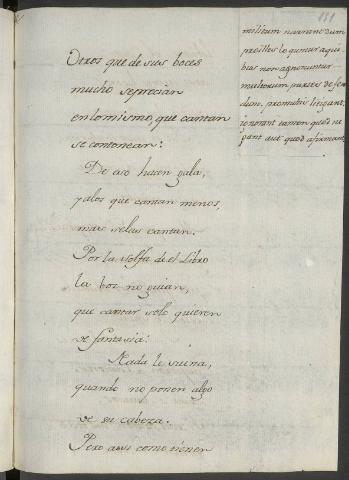 131
Otros que de sus boces
mucho se precian
en lo mismo, que cantan
se contonean:
De eso hacen gala,
y a los que cantan menos,
mas se las cantan.
Por la solfa de el Libro
la boz no guian,
que cantar solo quieren
de fantasia:
Nada le suena,
quando no ponen algo
de su cabeza.
Pero aun como tienen
militum narranc dum
preilles lo quntur aqui
bus non aponuntur
multorum partes defen
dum, promultis litigant,
ignorant tamen quod ne
gant aut quod afirmant